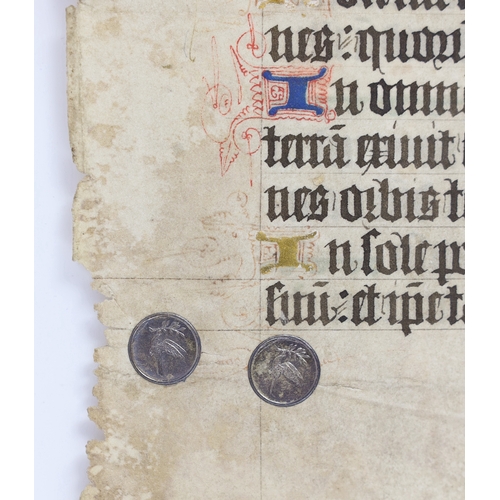 nes: quorū
In omne
terrā exivit
nes orbis t
In sole po
suū: et ip̄e ta